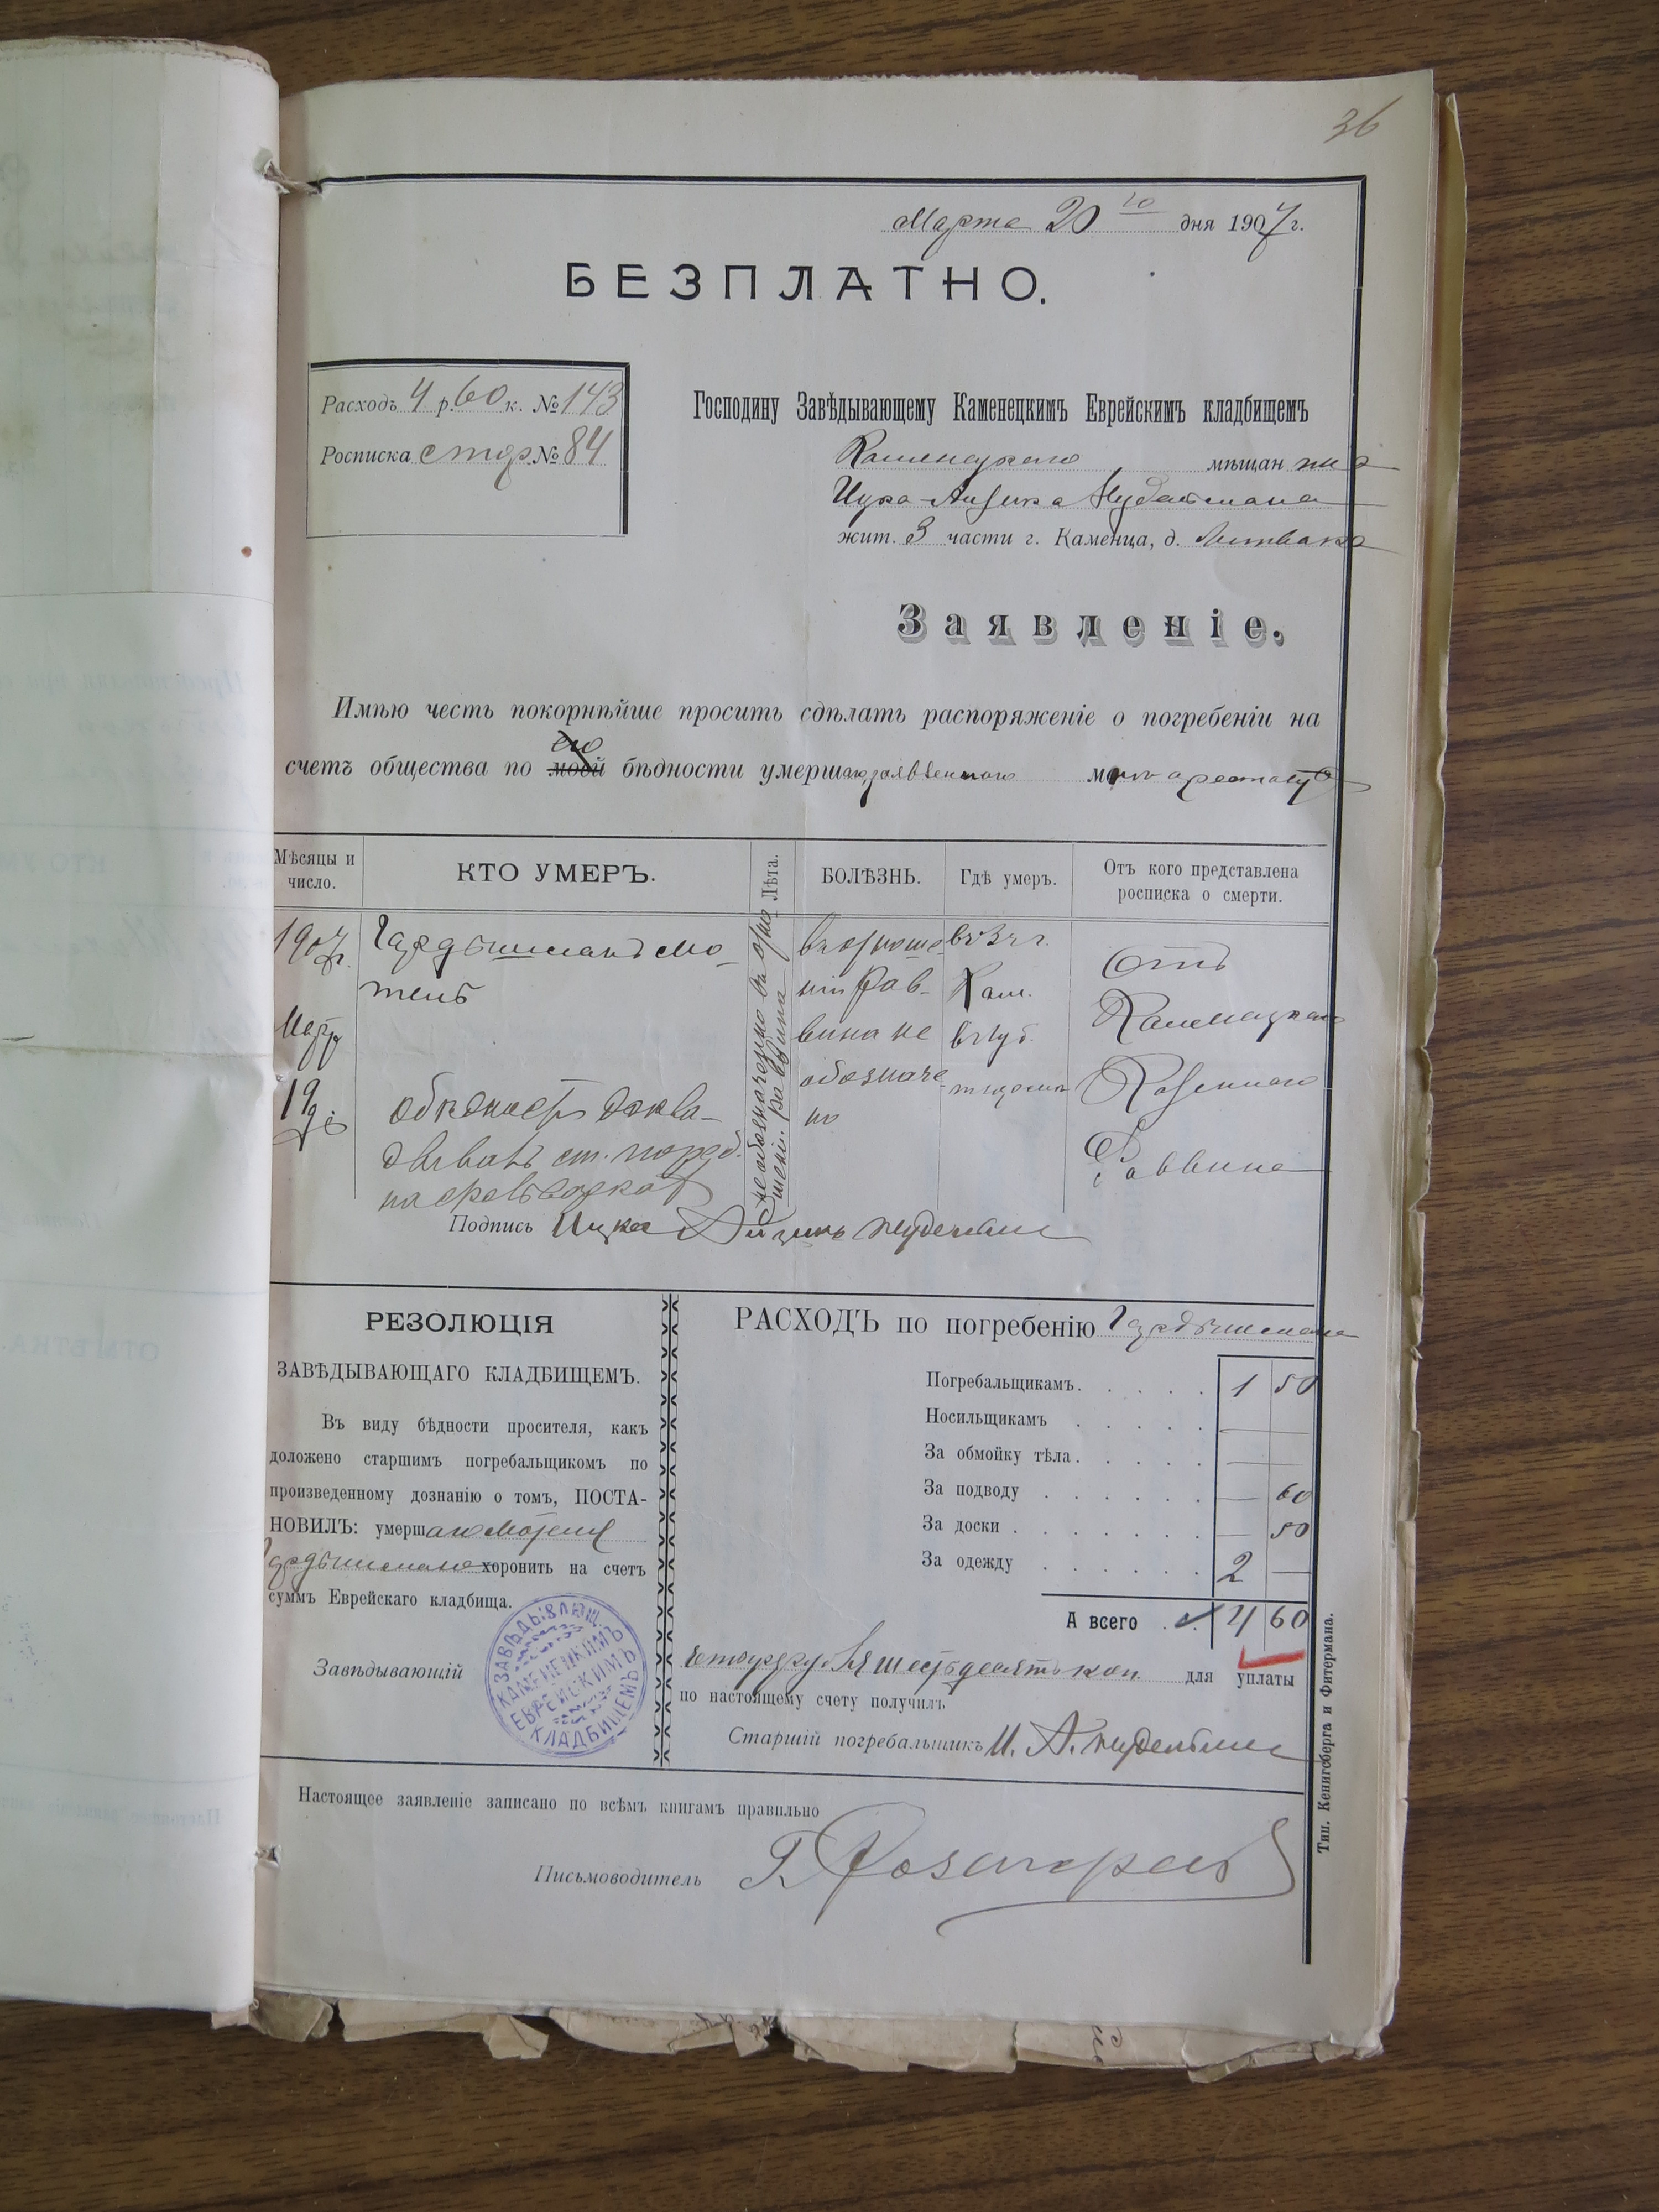 36
Марта 20 го дня 1907 г.
БЕЗПЛАТНО.
Расходъ 4 р. 60 к. № 143
Росписка стор. № 84
Господину Завѣдывающему Каменецкимъ Еврейскимъ кладбищемъ
Каменецкаго мѣщанина
Ицка-Айзика
жит. 3 части г. Каменца, д. Литвака
Заявленіе.
Имѣю честь покорнѣйше просить сдѣлать распоряженіе о погребеніи на
его
счетъ общества по моей бѣдности умершаго
Мѣсяцы и число.
КТО УМЕРЪ.
Лѣта.
БОЛѢЗНЬ.
Гдѣ умеръ.
Отъ кого представлена росписка о смерти.
1907 г.
Марта
19 дня
мо-
тель
Не обозначено въ отно-
шеніи раввина
въ отноше-
ніи рав-
вина не
обозначе-
но
въ г.
Кам.
въ губ.
Отъ
Каменецкаго
Казеннаго
Раввина
о бѣдности доkла-
дывалъ ст. погреб.
Подпись Ицко Айзикъ
РЕЗОЛЮЦІЯ
ЗАВѢДЫВАЮЩАГО КЛАДБИЩЕМЪ.
Въ виду бѣдности просителя, какъ
доложено старшимъ погребальщикомъ по
произведенному дознанію о томъ, ПОСТА-
НОВИЛЪ: умершаго Мотеля
хоронить на счетъ
суммъ Еврейскаго кладбища.
Завѣдывающій
ЗАВѢДЫВАЮЩ.
КАМЕНЕЦКИМЪ
ЕВРЕЙСКИМЪ
КЛАДБИЩЕМЪ
РАСХОДЪ по погребенію
Погребальщикамъ. 1 50
Носильщикамъ — —
За обмойку тѣла. — —
За подводу — 60
За доски — 50
За одежду 2 —
А всего 4 60
четыре рубля шестьдесятъ коп. для уплаты
по настоящему счету получилъ
Старшій погребальщикъ И. А.
Настоящее заявленіе записано по всѣмъ книгамъ правильно
Письмоводитель
Тип. Кенигсберга и Фитермана.